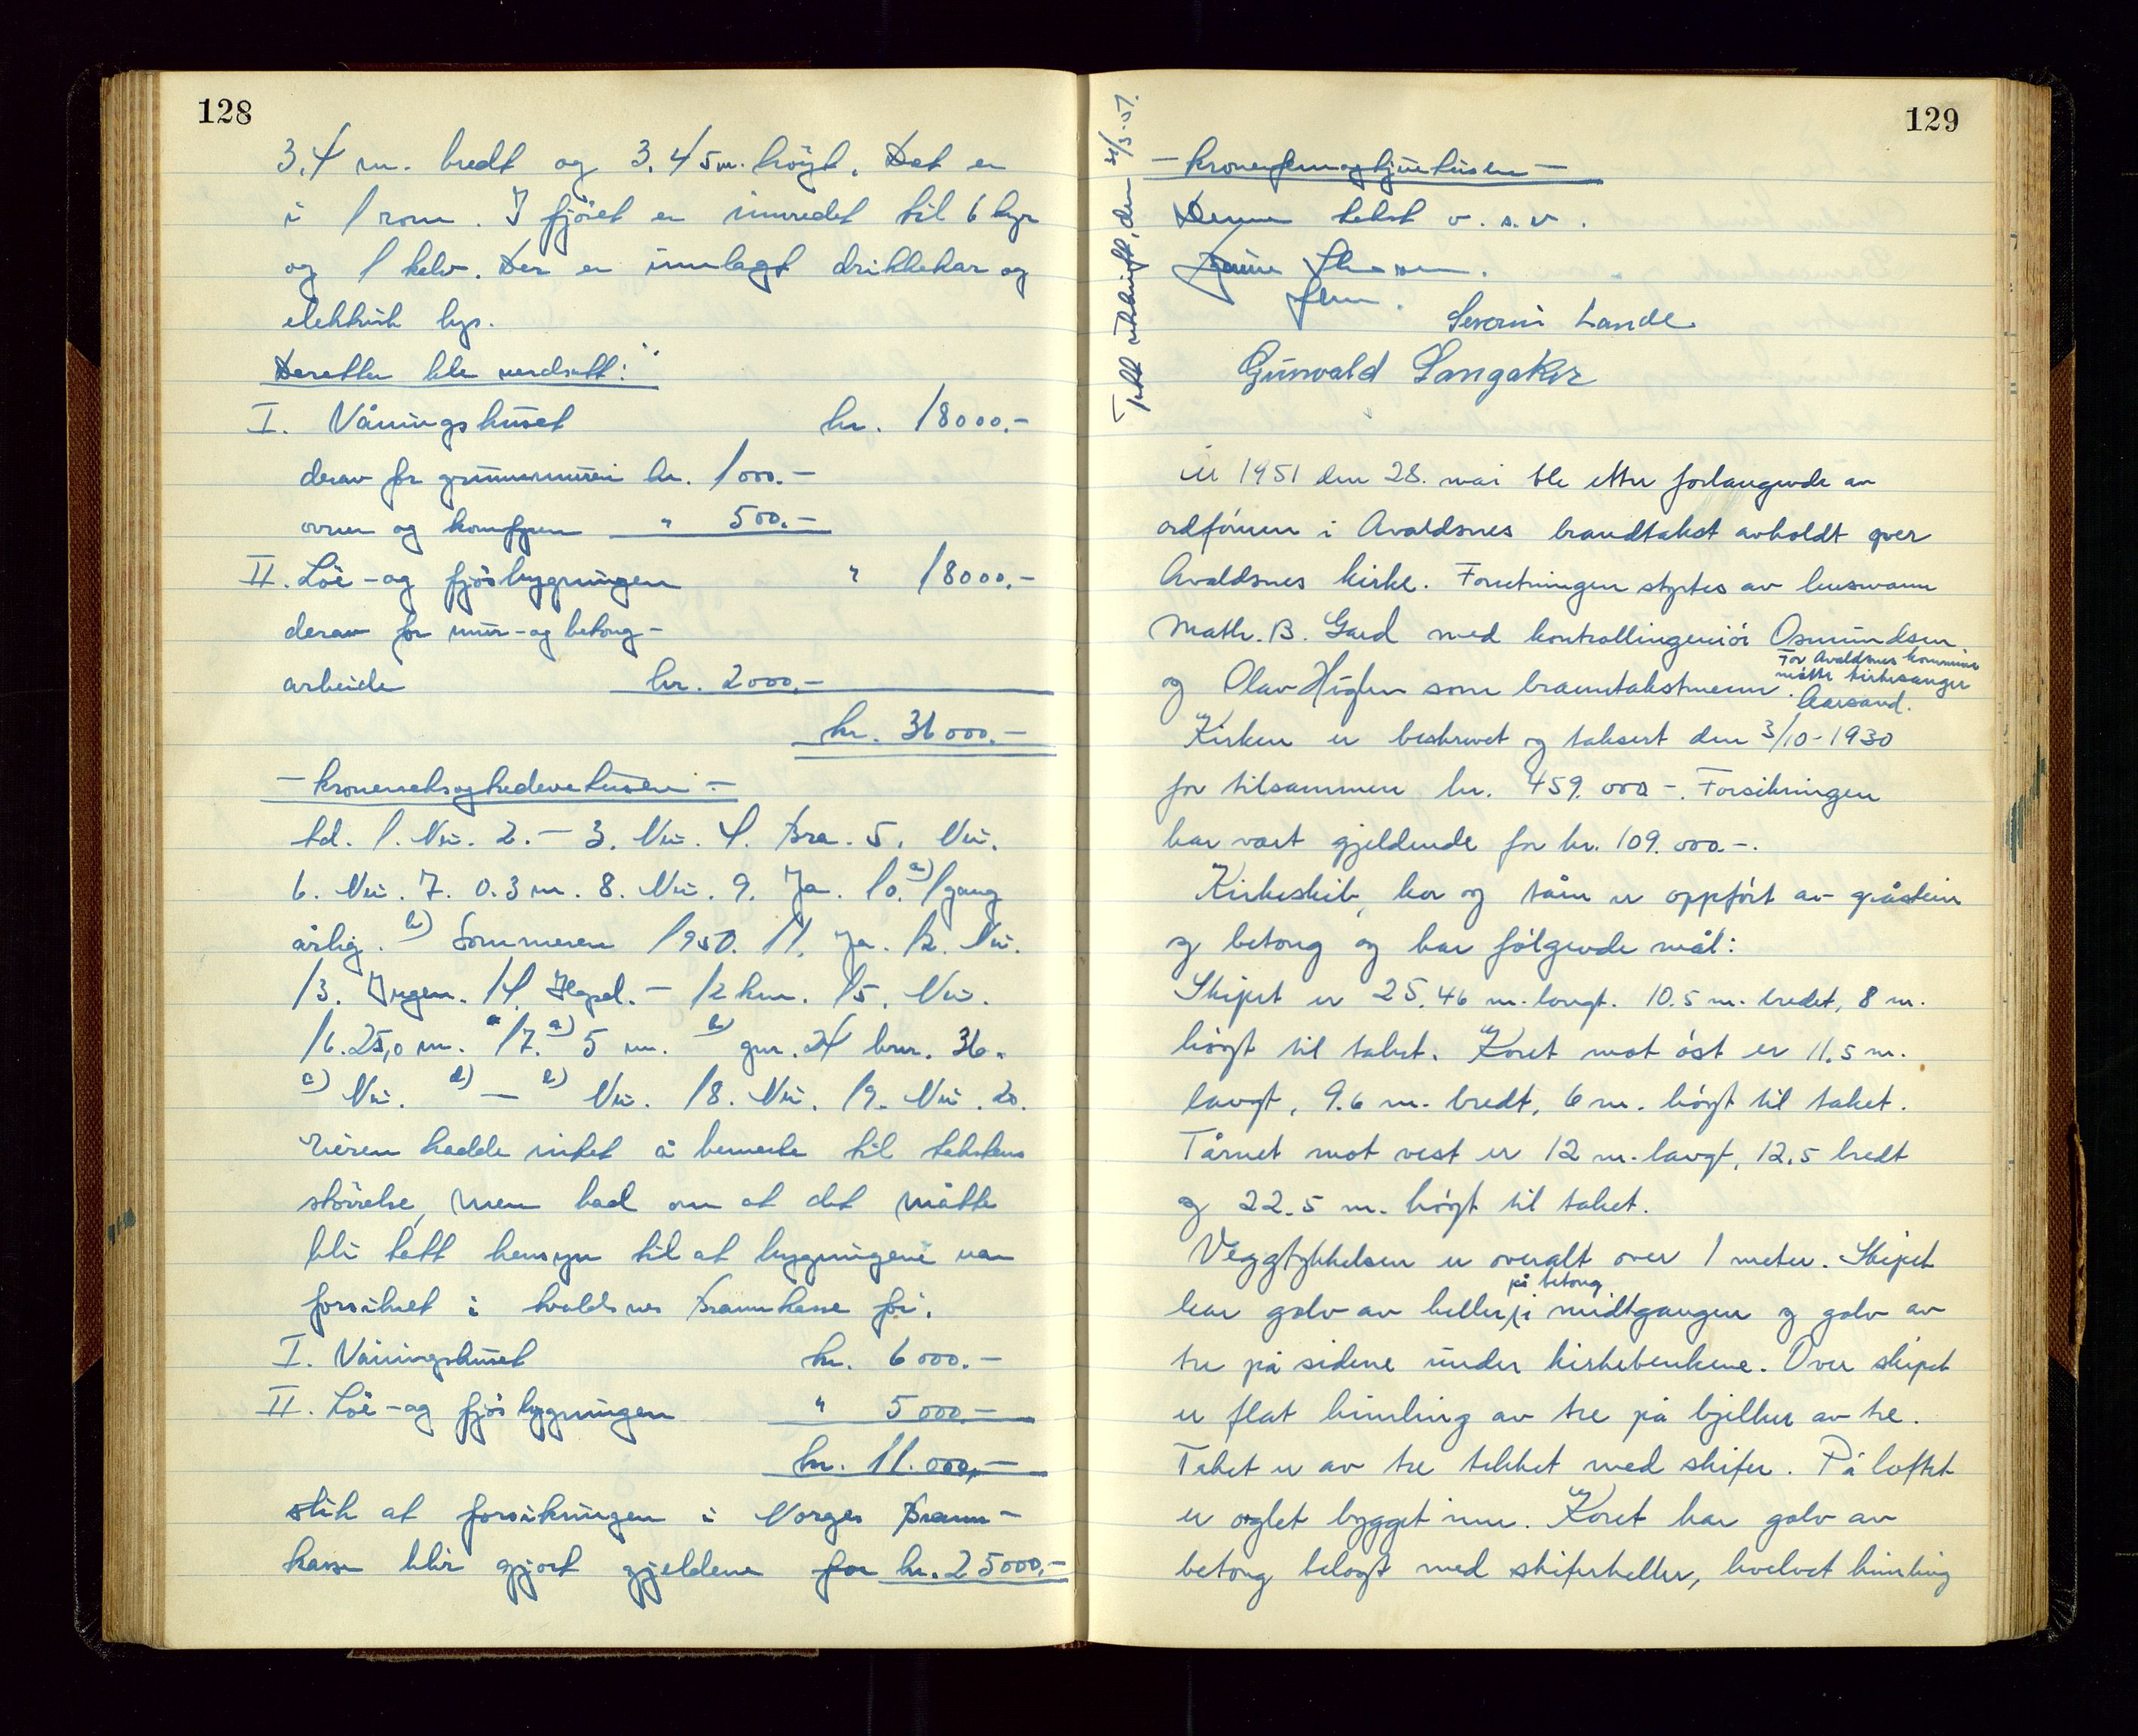 128
3.4 m. bredt og 3.45 m. høgt. Det er
i 1 rom. I fjøset er innredet til 6 kyr
og 1 kalv. Der er innlagt drikkekar og
elektrisk lys.
Deretter ble verdsatt:
I. Våningshuset kr. 18000.-
derav for grunnmuren kr. 1000.-
ovner og komfyren " 500.-
II. Løe- og fjøsbygningen " 18000.-
derav for mur- og betong-
arbeide kr. 2000.-
kr. 36000.-
- kronersekstitusen -
td. 1. Nei. 2. - 3. Nei. 4. Bra. 5. Nei.
6. Nei. 7. 0.3 m. 8. Nei. 9. Ja. 10. a) 1 gang
årlig. b) Sommeren 1950. 11. Ja. 12. Nei.
13. Ingen. 14. - 12 km. 15. Nei.
16. 25,0 m. 17. a) 5 m. b) gnr. 24 bnr. 36.
c) Nei. d) - e) Nei. 18. Nei. 19. Nei. 20.
Eieren hadde intet å bemerke til takstens
størrelse, men bad om at det måtte
bli tatt hensyn til at bygningene var
forsikret i Avaldsnes Brannkasse for.
I. Våningshuset kr. 6000.-
II. Løe- og fjøsbygningen " 5000.-
kr. 11.000,-
slik at forsikringen i Norges Brann-
kasse blir gjort gjeldene for kr. 25000.-
129
- kronerfemogtjuetusen -
Denne takst o. s. v.
Severin Lande
Gunvald Langaker
Tatt utskrift, den 31/5-51.
År 1951 den 28. mai ble etter forlangende av
ordføreren i Avaldsnes brandtakst avholdt over
Avaldsnes kirke. Forretningen styrtes av lensmann
Math. B. Gard med kontrollingeniør Osmundsen
og Olav som branntakstmenn. For Avaldsnes kommune
møtte kirkesanger
Aarsand.
Kirken er beskrevet og taksert den 3/10-1930
for tilsammen kr. 459.000-. Forsikringen
har vært gjeldende for kr. 109.000.-.
Kirkeskib, kor og tårn er oppført av gråstein
og betong og har følgende mål:
Skipet er 25.46 m. langt. 10.5 m. bredet, 8 m.
høgt til taket. Koret mot øst er 11.5 m.
langt, 9.6 m. bredt, 6 m. høgt til taket.
Tårnet mot vest er 12 m. langt, 12.5 bredt
og 22.5 m. høgt til taket.
Veggtykkelsen er overalt over 1 meter. Skipet
på betong
har golv av heller i midtgangen og golv av
tre på sidene under kirkebenkene. Over skipet
er flat himling av tre på bjelker av tre.
Taket er av tre tekket med skifer. På loftet
er orglet bygget inn. Koret har golv av
betong belagt med skiferheller, hvelvet himling